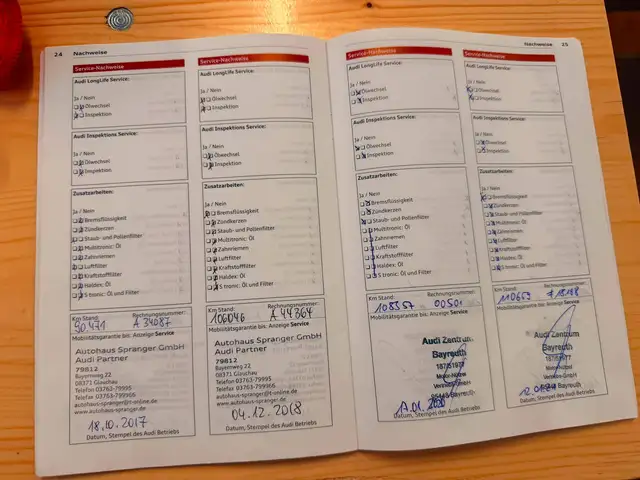 24 Nachweise
Service-Nachweise
Audi LongLife Service:
Ja / Nein
Ölwechsel
Inspektion
Audi Inspektions Service:
Ja / Nein
Ölwechsel
Inspektion
Zusatzarbeiten:
Ja / Nein
Bremsflüssigkeit
Zündkerzen
Staub- und Pollenfilter
Multitronic: Öl
Zahnriemen
Luftfilter
Kraftstofffilter
Haldex: Öl
S tronic: Öl und Filter
Km Stand: Rechnungsnummer:
90.471 A 34087
Mobilitätsgarantie bis: Anzeige Service
Autohaus Spranger GmbH
Audi Partner
79812
Bayernweg 22
08371 Glauchau
Telefon 03763-79995
Telefax 03763-799966
autohaus-spranger@t-online.de
www.autohaus-spranger.de
18.10.2017
Datum, Stempel des Audi Betriebs
Service-Nachweise
Audi LongLife Service:
Ja / Nein
Ölwechsel
Inspektion
Audi Inspektions Service:
Ja / Nein
Ölwechsel
Inspektion
Zusatzarbeiten:
Ja / Nein
Bremsflüssigkeit
Zündkerzen
Staub- und Pollenfilter
Multitronic: Öl
Zahnriemen
Luftfilter
Kraftstofffilter
Haldex: Öl
S tronic: Öl und Filter
Km Stand: Rechnungsnummer:
106046 A 44364
Mobilitätsgarantie bis: Anzeige Service
Autohaus Spranger GmbH
Audi Partner
79812
Bayernweg 22
08371 Glauchau
Telefon 03763-79995
Telefax 03763-799966
autohaus-spranger@t-online.de
www.autohaus-spranger.de
04.12.2018
Datum, Stempel des Audi Betriebs
Nachweise 25
Service-Nachweise
Audi LongLife Service:
Ja / Nein
Ölwechsel
Inspektion
Audi Inspektions Service:
Ja / Nein
Ölwechsel
Inspektion
Zusatzarbeiten:
Ja / Nein
Bremsflüssigkeit
Zündkerzen
Staub- und Pollenfilter
Multitronic: Öl
Zahnriemen
Luftfilter
Kraftstofffilter
Haldex: Öl
S tronic: Öl und Filter
Km Stand: Rechnungsnummer:
108357 00501
Mobilitätsgarantie bis: Anzeige Service
Audi Zentrum
Bayreuth
Motor-Nützel
95448 Bayreuth
Datum, Stempel des Audi Betriebs
Service-Nachweise
Audi LongLife Service:
Ja / Nein
Ölwechsel
Inspektion
Audi Inspektions Service:
Ja / Nein
Ölwechsel
Inspektion
Zusatzarbeiten:
Ja / Nein
Bremsflüssigkeit
Zündkerzen
Staub- und Pollenfilter
Multitronic: Öl
Zahnriemen
Luftfilter
Kraftstofffilter
Haldex: Öl
S tronic: Öl und Filter
Km Stand: Rechnungsnummer:
110659
Mobilitätsgarantie bis: Anzeige Service
Audi Zentrum
Bayreuth
Motor-Nützel
Bayreuth
Datum, Stempel des Audi Betriebs